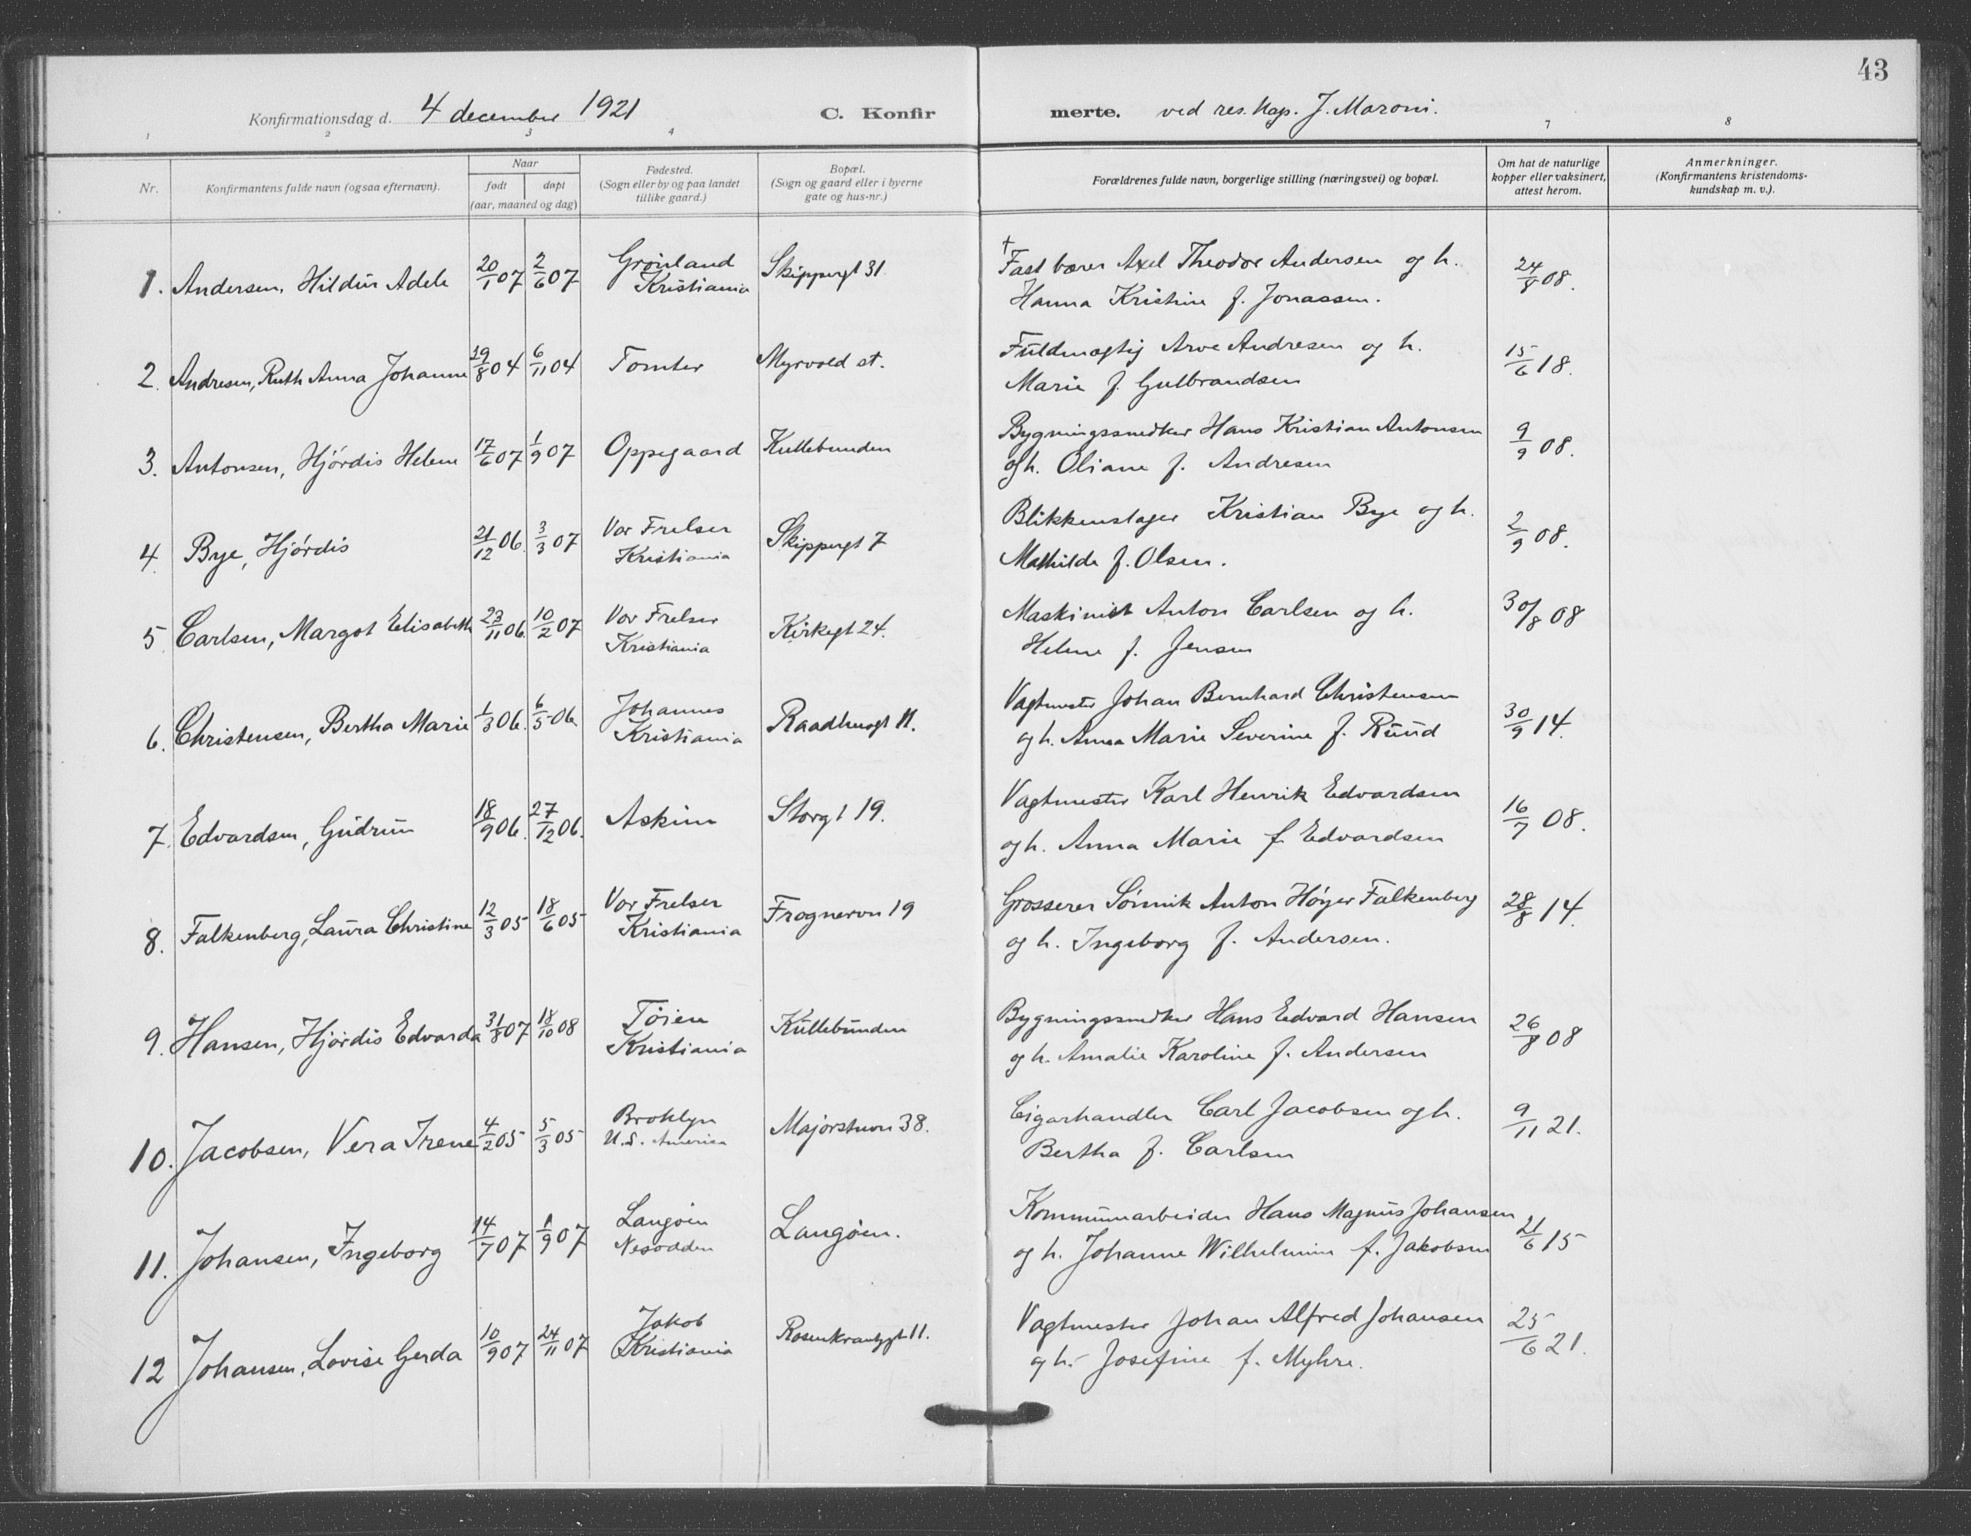 43
Konfirmationsdag d. 4 december 1921 C. Konfirmerte. ved res. kap. J. Maroni.
1 2 3 4 7 8
Nr. Konfirmantens fulde navn (ogsaa efternavn). Naar født døpt (aar, maaned og dag) Fødested. (Sogn eller by og paa landet tillike gaard.) Bopæl. (Sogn og gaard eller i byerne gate og hus-nr.) Forældrenes fulde navn, borgerlige stilling (næringsvei) og bopæl. Om hat de naturlige kopper eller vaksinert, attest herom. Anmerkninger. (Konfirmantens kristendomskundskap m. v.).
1. Andersen, Hildur Adele 20/1 07 2/6 07 Grønland Kristiania Skippergt 31. † Fast bærer Axel Theodor Andersen og h. Hanna Kristine f. Jonassen. 24/8 08.
2. Andresen, Ruth Anna Johanne 19/8 04 6/11 04 Tomter Myrvold st. Fuldmægtig Arve Andresen og h. Marie f. Gulbrandsen 15/6 18.
3. Antonsen, Hjørdis Helene 17/6 07 1/9 07 Oppegaard Kullebunden Bygningssnedker Hans Kristian Antonsen og h. Oliane f. Andresen 9/9 08.
4. Bye, Hjørdis 21/12 06. 3/3 07 Vor Frelser Kristiania Skippergt 7 Blikkenslager Kristian Bye og h. Mathilde f. Olsen. 2/9 08.
5 Carlsen, Margot Elisabeth 23/11 06. 10/2 07 Vor Frelser Kristiania Kirkegt 24. Maskinist Anton Carlsen og h. Helene f. Jensen 30/8 08
6. Christensen, Bertha Marie 1/3 06. 6/5 06. Johannes Kristiania Raadhusgt 11. Vagtmester Johan Bernhard Christensen og h. Anna Marie Severine f. Ruud 30/9 14.
7. Edvardsen, Gudrun 18/9 06. 27/12 06. Askim Storgt 19. Vagtmester Karl Henrik Edvardsen og h. Anna Marie f. Edvardsen 16/7 08.
8. Falkenberg, Laura Christine 12/3 05 18/6 05 Vor Frelser Kristiania Frognervn 19 Grosserer Sønnik Anton Høyer Falkenberg og h. Ingeborg f. Andersen. 28/8 14.
9. Hansen, Hjørdis Edvarda 31/8 07 18/10 08 Tøien Kristiania Kullebunden Bygningssnedker Hans Edvard Hansen og h. Amalie Karoline f. Andersen 26/8 08
10. Jacobsen, Vera Irene 4/2 05 5/3 05 Broklyn U.S. America Majorstuvn 38. Cigarhandler Carl Jacobsen og h. Bertha f. Carlsen 9/11 21.
11. Johansen, Ingeborg 14/7 07 1/9 07 Langøien Nesodden Langøien. Kommunearbeider Hans Magnus Johansen og h. Johanne Wilhelmine f. Jakobsen 21/6 15
12 Johansen, Lovise Gerda 10/9 07 24/11 07 Jakob Kristiania Rosenkrantzgt 11. Vagtmester Johan Alfred Johansen og h. Josefine f. Myhre. 25/6 21.